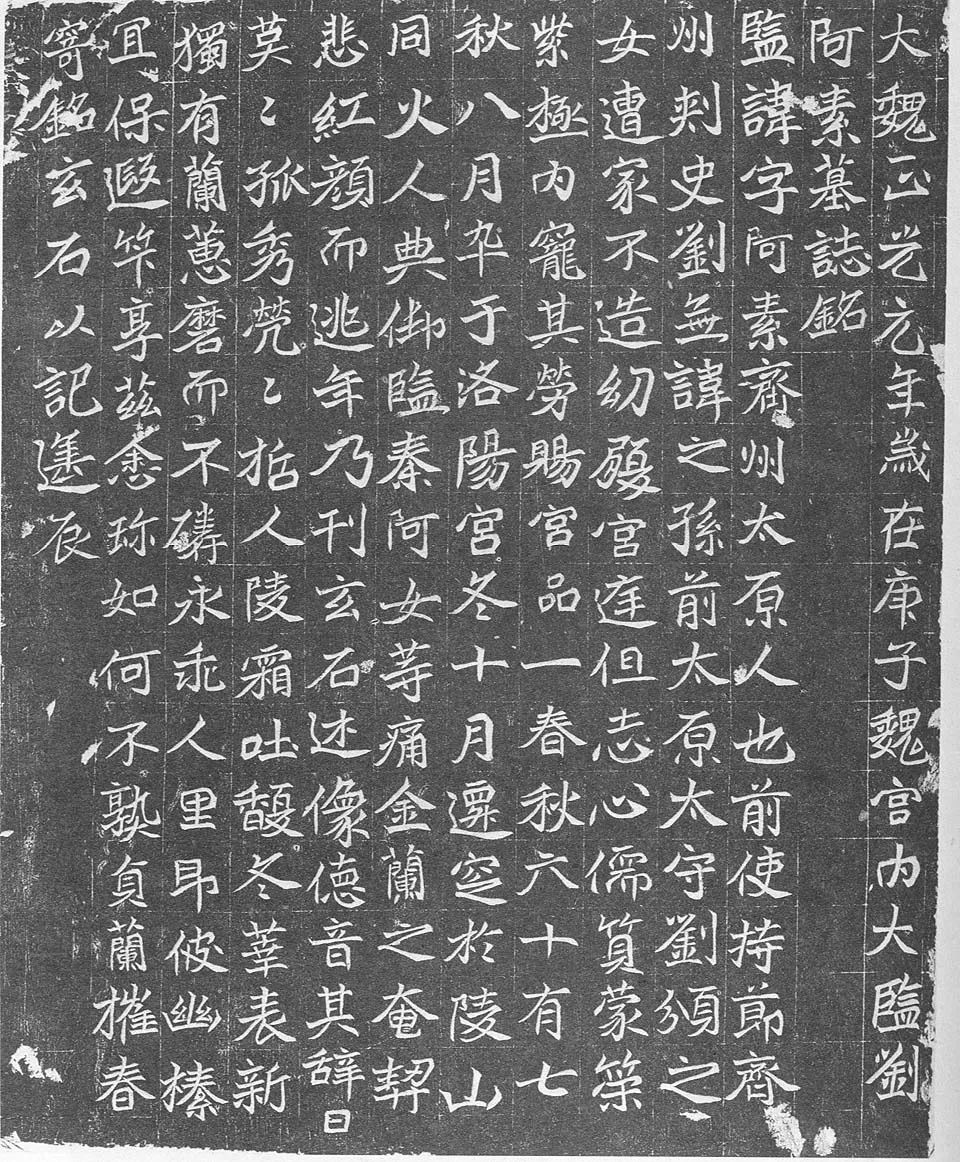 大魏正光元年歲在庚子魏宮内大監劉
阿素墓誌銘
監諱字阿素齊州太原人也前使持節齊
州刾史劉無諱之孫前太原太守劉頒之
女遭家不造幼履宮庭但志心儒質蒙策
紫極内寵其勞賜宮品一春秋六十有七
秋八月卆于洛陽宮冬十月遷窆於陵山
同火人典御監秦阿女等痛金蘭之奄契
悲紅顏而逃年乃刊玄石述像德音其辞曰
莫〻孤秀煢〻哲人陵霜吐馥冬華表新
獨有蘭蕙磨而不磷永乖人里即彼幽榛
宜保遐筭享茲悆珎如何不孰貞蘭摧春
寄銘玄石以記遷辰